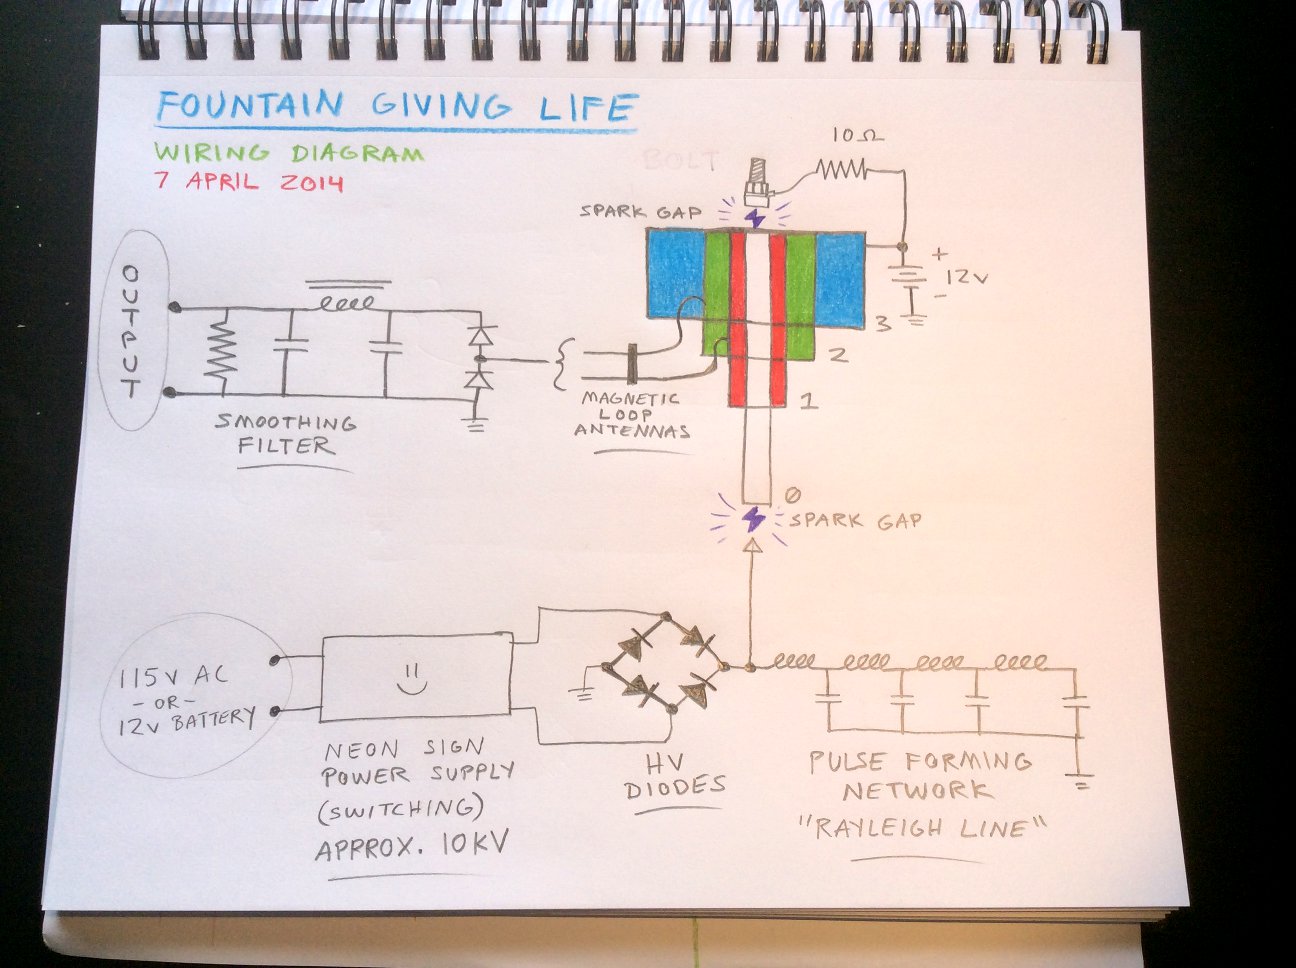 FOUNTAIN GIVING LIFE
WIRING DIAGRAM
7 APRIL 2014
BOLT
10Ω
SPARK GAP
+
12V
-
3
2
1
0
SPARK GAP
OUTPUT
SMOOTHING
FILTER
MAGNETIC
LOOP
ANTENNAS
115V AC
- OR -
12V BATTERY
NEON SIGN
POWER SUPPLY
(SWITCHING)
APPROX. 10KV
HV
DIODES
PULSE FORMING
NETWORK
"RAYLEIGH LINE"